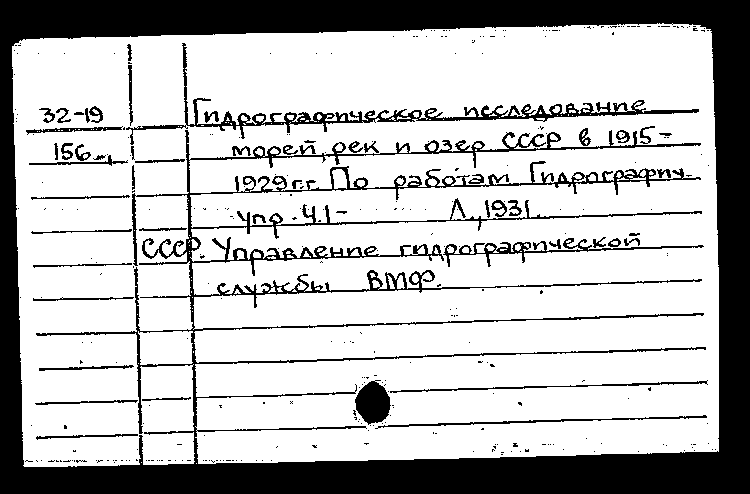 32-19 Гидрографическое исследование
156 морей, рек и озер СССР в 1915-
1929 г.г. По работам Гидрографич.
упр. Ч.1- Л., 1931.
СССР. Управление гидрографической
службы ВМФ.